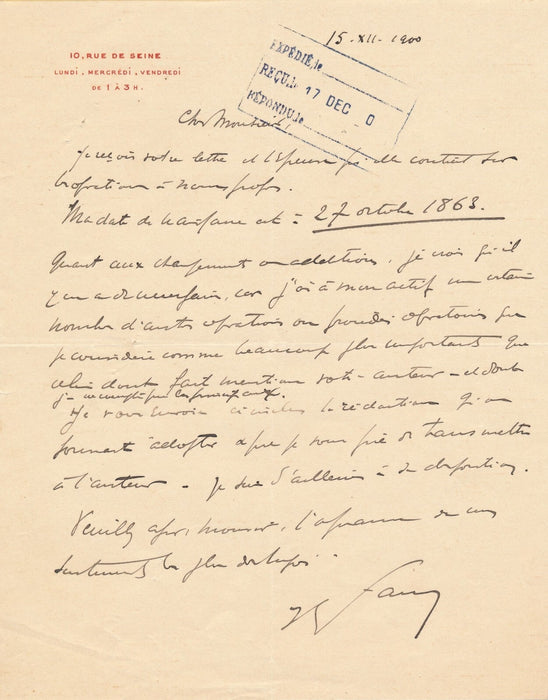 10, RUE DE SEINE
LUNDI, MERCREDI, VENDREDI
DE 1 À 3 H.
15 - XII - 1900
EXPÉDIÉ, le
REÇU, le 17 DEC 0
RÉPONDU, le
Cher Monsieur,
Je reçois votre lettre et l'épreuve qu'elle contient sur
la profession à mon propos.
Ma date de naissance est = 27 octobre 1863.
Quant aux changements ou additions, je crois qu'il
y en a à faire, car j'ai à mon actif un certain
nombre d'autres opérations ou procédés opératoires que
je considère comme beaucoup plus importants que
celui dont fait mention votre auteur - et dont
je
Je vous envoie ci inclus la rédaction qu'on
pourrait adopter et que je vous prie de transmettre
à l'auteur - Je suis d'ailleurs à sa disposition.
Veuillez agréer, monsieur, l'assurance de mes
sentiments les plus distingués.
JL Faure